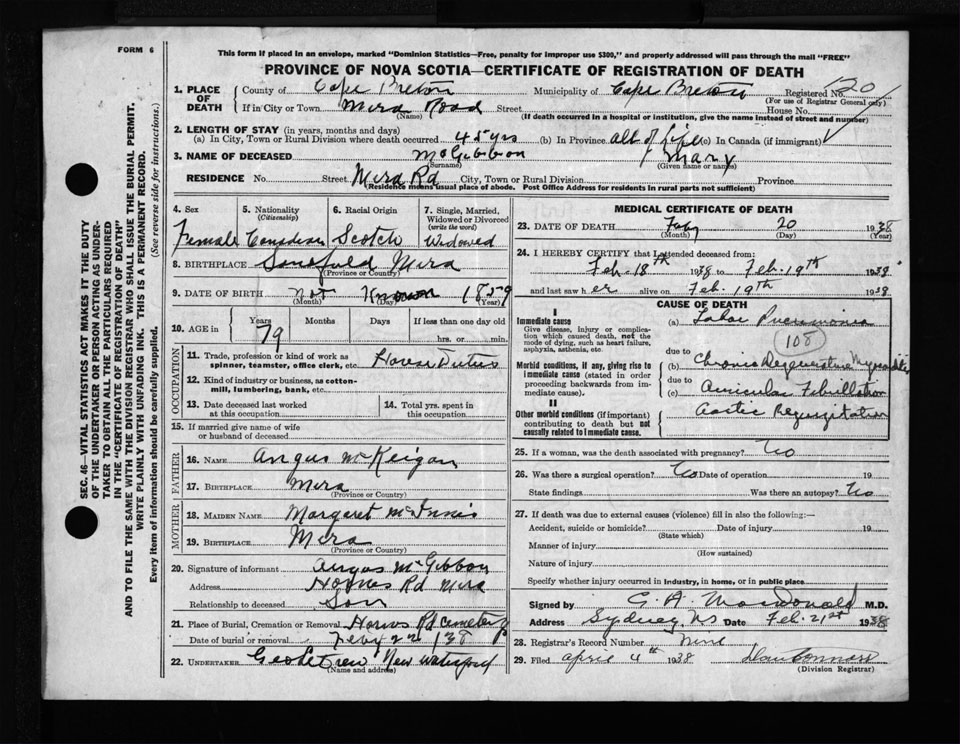 FORM 6
This form if placed in an envelope, marked "Dominion Statistics—Free, penalty for improper use $300," and properly addressed will pass through the mail "FREE"
PROVINCE OF NOVA SCOTIA—CERTIFICATE OF REGISTRATION OF DEATH
SEC. 46—VITAL STATISTICS ACT MAKES IT THE DUTY
OF THE UNDERTAKER OR PERSON ACTING AS UNDER-
TAKER TO OBTAIN ALL THE PARTICULARS REQUIRED
IN THE "CERTIFICATE OF REGISTRATION OF DEATH"
AND TO FILE THE SAME WITH THE DIVISION REGISTRAR WHO SHALL ISSUE THE BURIAL PERMIT.
WRITE PLAINLY WITH UNFADING INK. THIS IS A PERMANENT RECORD.
Every item of information should be carefully supplied. (See reverse side for instructions.)
1. PLACE OF DEATH
County of Cape Breton Municipality of Cape Breton Registered No. 120
(For use of Registrar General only)
If in City or Town Mira Road Street House No.
(Name) (If death occurred in a hospital or institution, give the name instead of street and number)
2. LENGTH OF STAY (in years, months and days)
(a) In City, Town or Rural Division where death occurred 45 yrs (b) In Province all of life (c) In Canada (if immigrant)
3. NAME OF DECEASED McGibbon Mary
(Surname) (Given name or names)
RESIDENCE No. Street Mira Rd City, Town or Rural Division Province
(Residence means usual place of abode. Post Office Address for residents in rural parts not sufficient)
4. Sex Female
5. Nationality (Citizenship) Canadian
6. Racial Origin Scotch
7. Single, Married, Widowed or Divorced (write the word) Widowed
8. BIRTHPLACE Mira
(Province or Country)
9. DATE OF BIRTH Not Known 1859
(Month) (Day) (Year)
10. AGE in Years Months Days If less than one day old
79 hrs. or min.
OCCUPATION
11. Trade, profession or kind of work as spinner, teamster, office clerk, etc. House Duties
12. Kind of industry or business, as cotton-mill, lumbering, bank, etc.
13. Date deceased last worked at this occupation
14. Total yrs. spent in this occupation
15. If married give name of wife or husband of deceased
FATHER
16. NAME Angus McKeigan
17. BIRTHPLACE Mira
(Province or Country)
MOTHER
18. MAIDEN NAME Margaret McInnis
19. BIRTHPLACE Mira
(Province or Country)
20. Signature of informant Angus McGibbon
Address Hornes Rd Mira
Relationship to deceased Son
21. Place of Burial, Cremation or Removal Hornes Rd Cemetery
Date of burial or removal Feby 22 / 38
22. UNDERTAKER New Waterford
(Name and address)
MEDICAL CERTIFICATE OF DEATH
23. DATE OF DEATH Feby 20 1938
(Month) (Day) (Year)
24. I HEREBY CERTIFY that I attended deceased from:
Feb. 18th 1938 to Feb. 19th 1938
and last saw her alive on Feb. 19th 1938.
CAUSE OF DEATH
I
Immediate cause
Give disease, injury or complication which caused death, not the mode of dying, such as heart failure, asphyxia, asthenia, etc.
(a) Lobar Pneumonia
108
due to
Morbid conditions, if any, giving rise to immediate cause (stated in order proceeding backwards from immediate).
(b) Chronic Degenerative Myocarditis
due to
(c) Auricular Fibrillation
II
Other morbid conditions (if important) contributing to death but not causally related to immediate cause.
Aortic Regurgitation
25. If a woman, was the death associated with pregnancy? No
26. Was there a surgical operation? No Date of operation 19
State findings Was there an autopsy? No
27. If death was due to external causes (violence) fill in also the following:—
Accident, suicide or homicide? Date of injury 19
(State which)
Manner of injury
(How sustained)
Nature of injury
Specify whether injury occurred in industry, in home, or in public place
Signed by C. A. MacDonald M.D.
Address Sydney, NS Date Feb. 21st 1938
28. Registrar's Record Number Nine
29. Filed April 4th 1938
(Division Registrar)